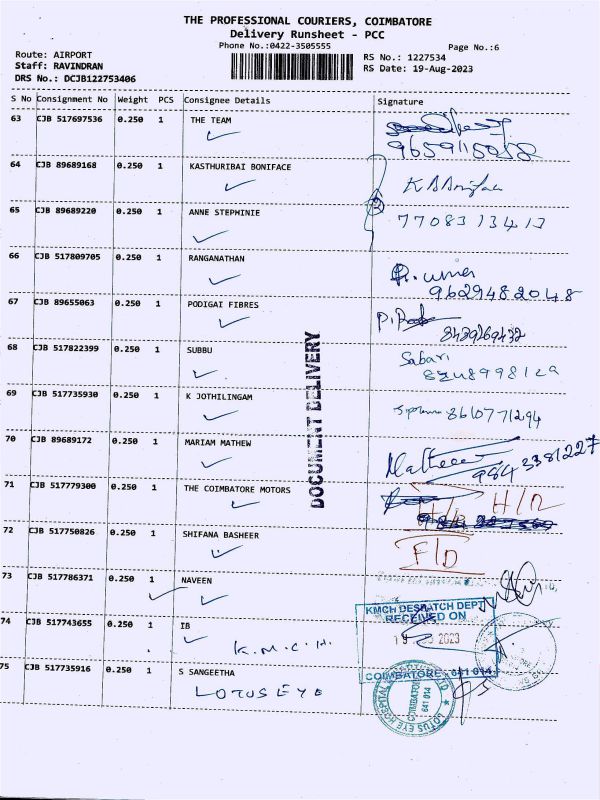 THE PROFESSIONAL COURIERS, COIMBATORE
Delivery Runsheet - PCC
Phone No.:0422-3505555
Page No.:6
Route: AIRPORT
RS No.: 1227534
Staff: RAVINDRAN
RS Date: 19-Aug-2023
DRS No.: DCJB122753406
S No Consignment No Weight PCS Consignee Details Signature
63 CJB 517697536 0.250 1 THE TEAM
64 CJB 89689168 0.250 1 KASTHURIBAI BONIFACE
65 CJB 89689220 0.250 1 ANNE STEPHINIE
7708313413
66 CJB 517809705 0.250 1 RANGANATHAN
9629482048
67 CJB 89655063 0.250 1 PODIGAI FIBRES
8439269432
68 CJB 517822399 0.250 1 SUBBU
Sabari
69 CJB 517735930 0.250 1 K JOTHILINGAM
8610771294
70 CJB 89689172 0.250 1 MARIAM MATHEW
Mathew
9843381227
71 CJB 517779300 0.250 1 THE COIMBATORE MOTORS
72 CJB 517750826 0.250 1 SHIFANA BASHEER
F/D
73 CJB 517786371 0.250 1 NAVEEN
74 CJB 517743655 0.250 1 IB
K.M.C.H.
75 CJB 517735916 0.250 1 S SANGEETHA
LOTUS EYE
DOCUMENT DELIVERY
KMCH DESPATCH DEPT
RECEIVED ON
2023
COIMBATORE - 641 014
LOTUS EYE HOSPITAL
COIMBATORE
641 014